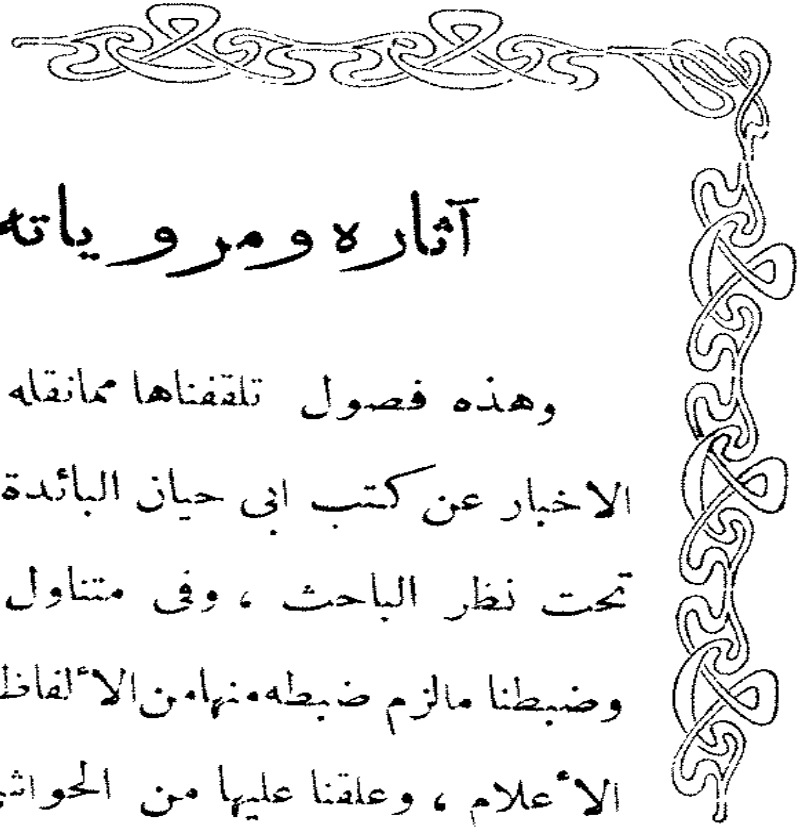 آثاره ومروياته
وهذه فصول تلقفناها ممانقله
الاخبار عن كتب ابى حيان البائدة
تحت نظر الباحث ، وفى متناول
وضبطنا مالزم ضبطه منها من الألفاظ
الأعلام ، وعلقنا عليها من